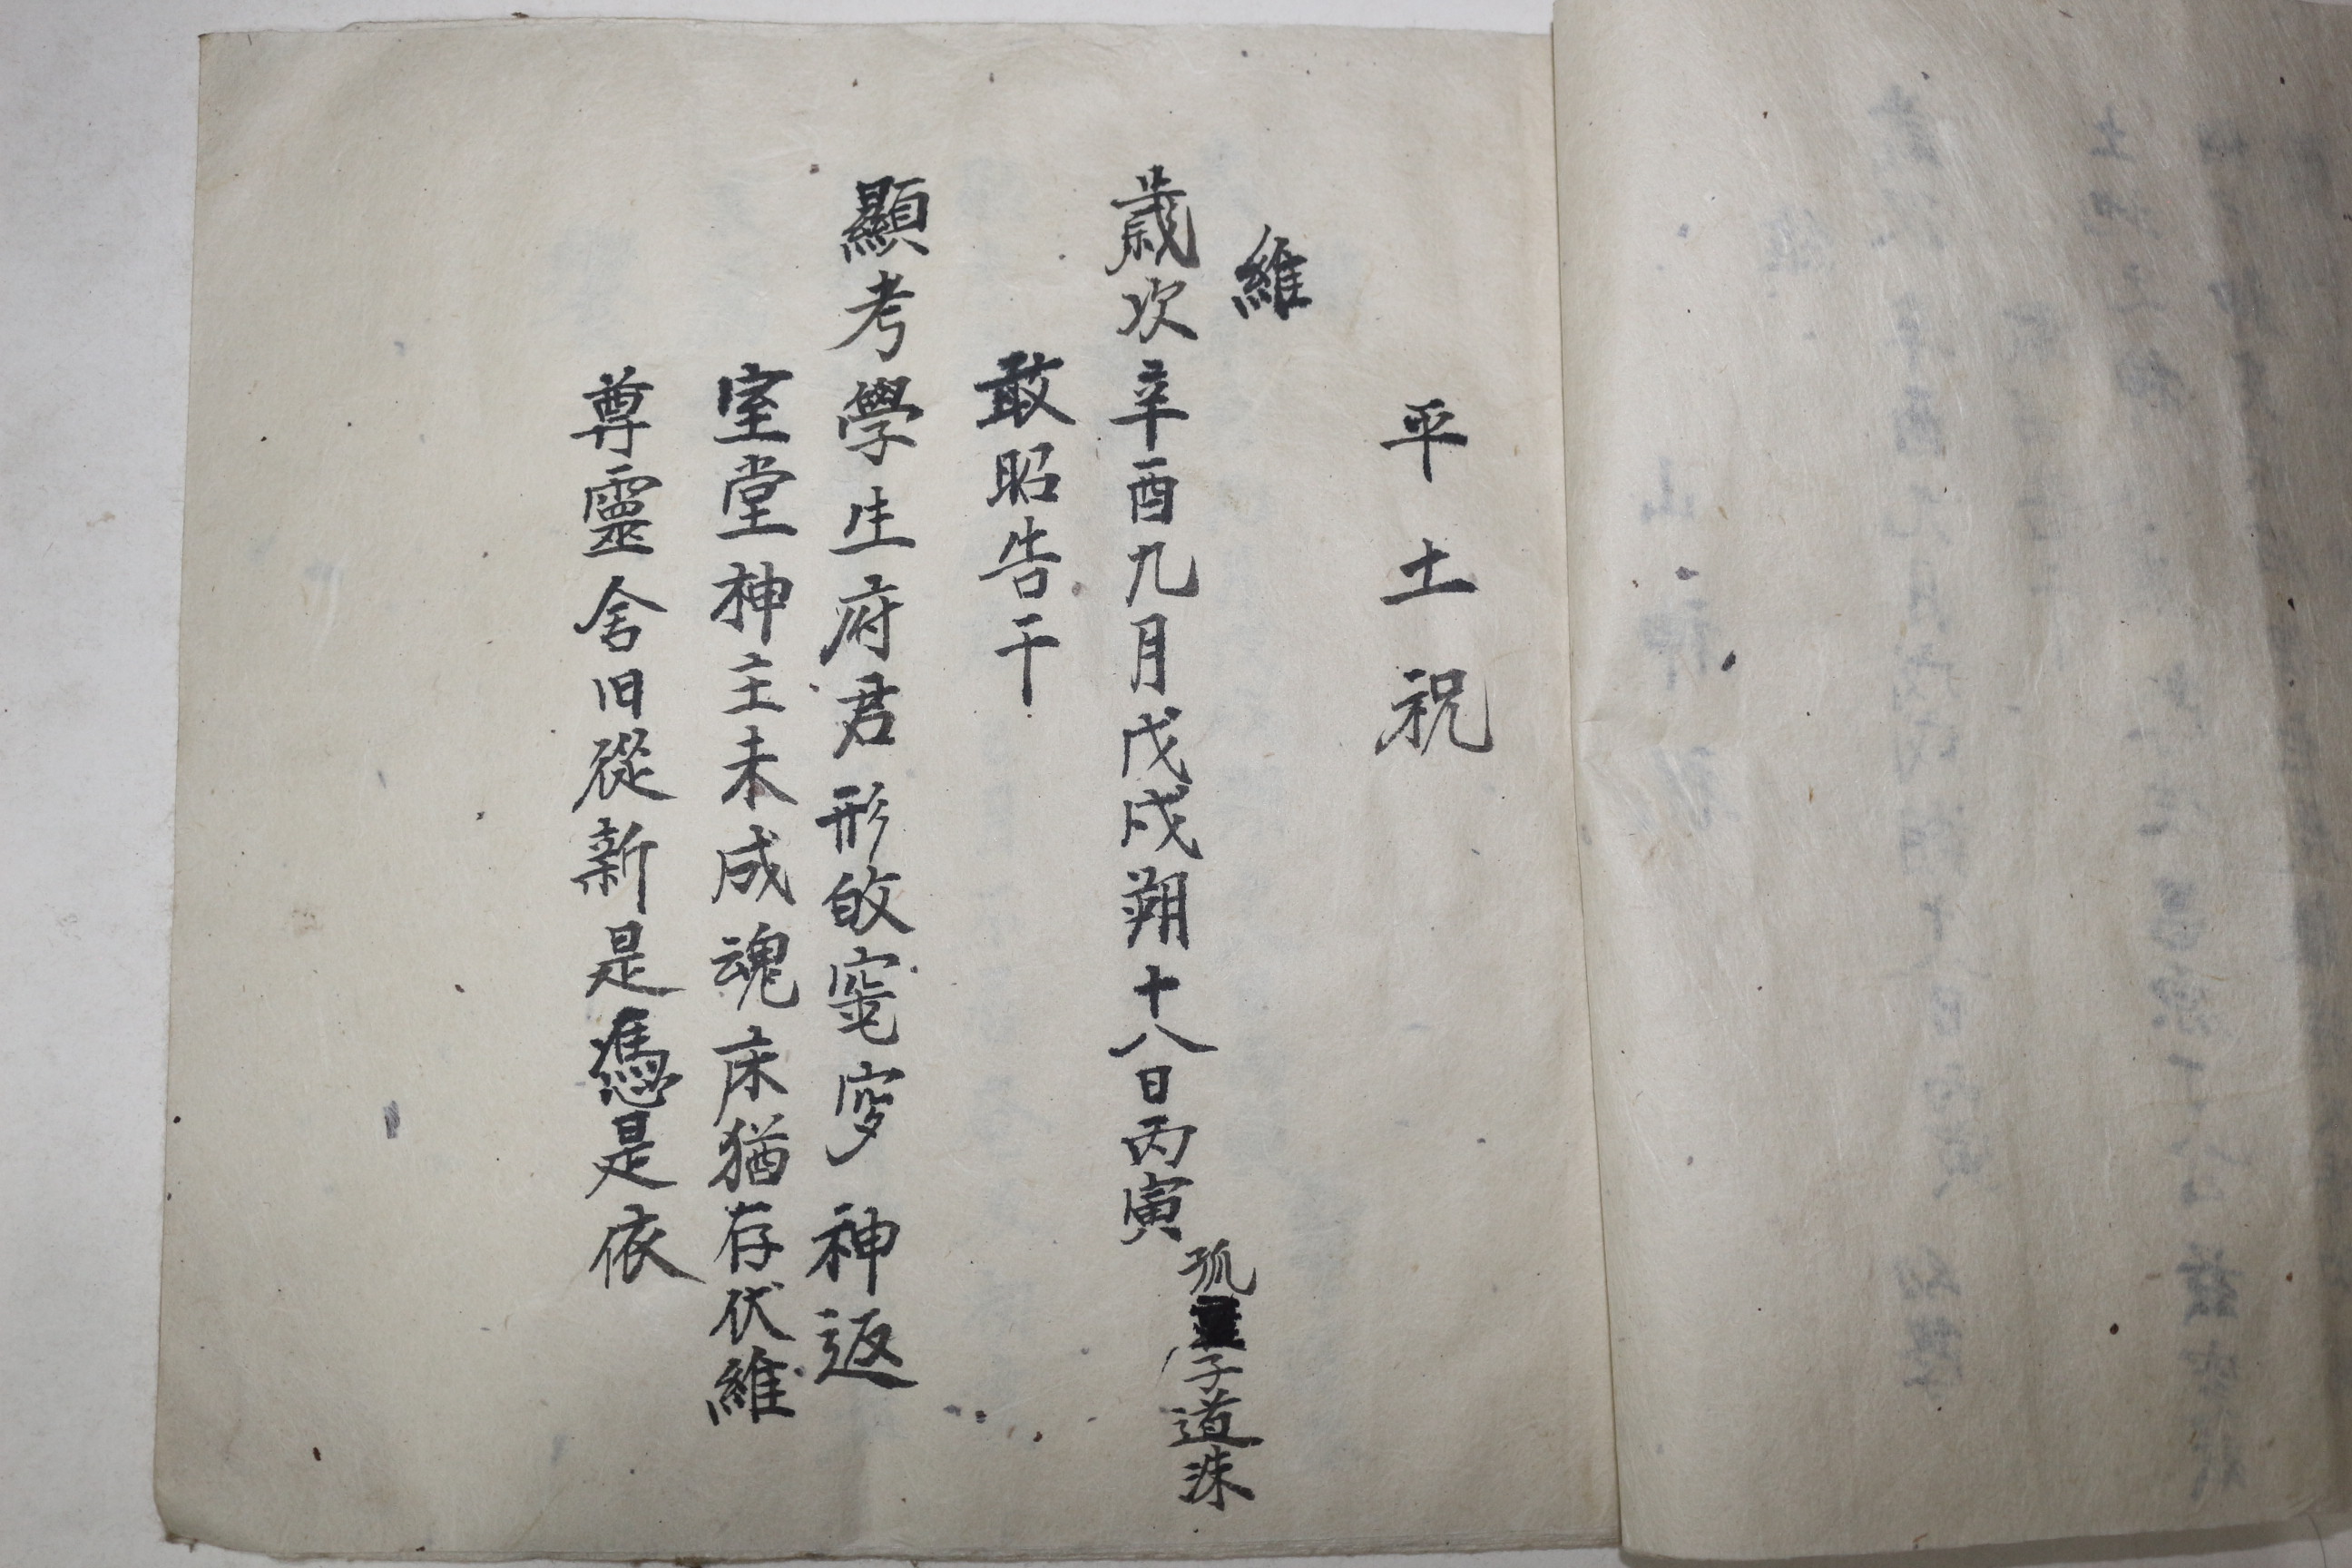 平土祝
維
歲次辛酉九月戊戌朔十八日丙寅
孤子道洙
敢昭告于
顯考學生府君形㱕窀穸神返
室堂神主未成魂床猶存伏維
尊靈舍旧從新是憑是依